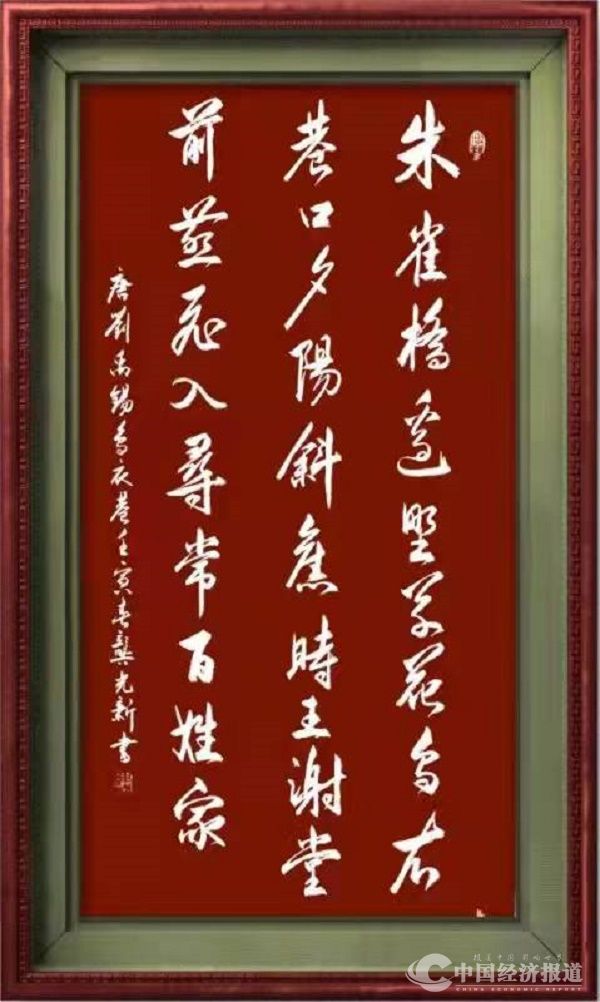 朱雀橋邊野草花烏衣
巷口夕陽斜舊時王謝堂
前燕飛入尋常百姓家
唐劉禹錫烏衣巷壬寅春龔光新書
中国经济报道
CHINA ECONOMIC REPORT